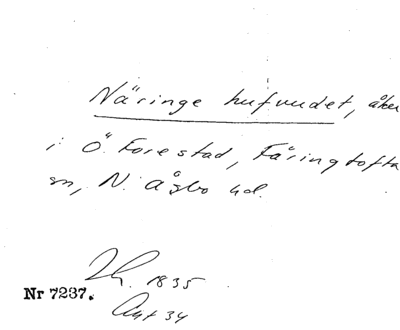 Näringe hufvudet, åker
i Ö. Forestad, Färingtofta
sn, N. Åsbo hd.
Lh. 1835
Nr 7237.
Akt 34